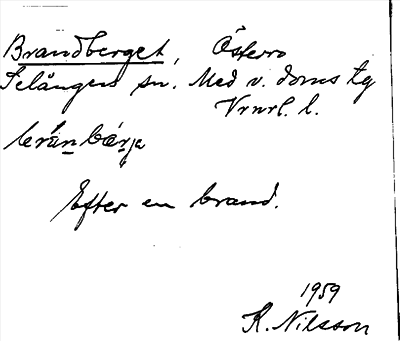 Brandberget, Österro
Selångers sn. Med v. doms tg
Vrnrl. l.
brán bárja
Efter en brand.
1959
K. Nilsson